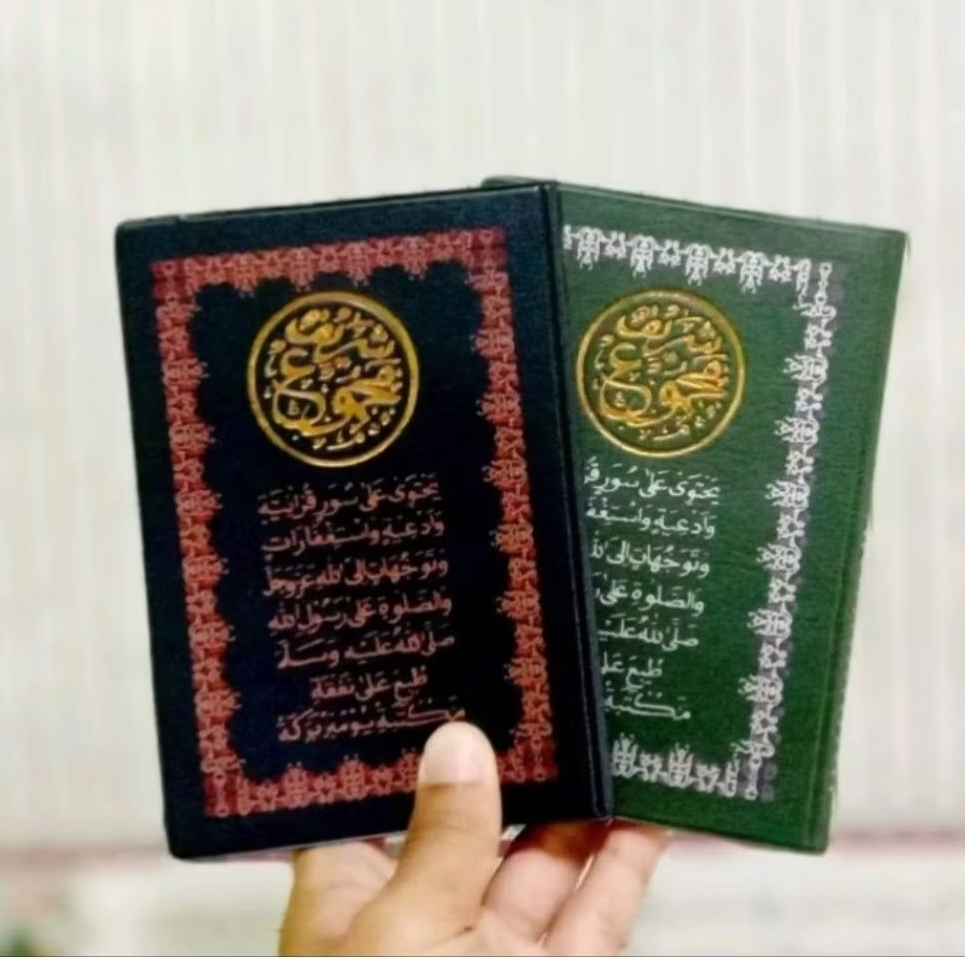 مجموع شريف
يَحْتَوِى عَلَى سُوَرٍ قُرْآنِيَّةٍ
وَاَدْعِيَةٍ وَاسْتِغْفَارَاتٍ
وَتَوَجُّهَاتٍ اِلَى اللهِ عَزَّوَجَلَّ
وَالصَّلٰوةِ عَلَى رَسُوْلِ اللهِ
صَلَّى اللهُ عَلَيْهِ وَسَلَّمَ
طُبِعَ عَلَى نَفَقَةِ
مَكْتَبَةِ
مجموع شريف
يَحْتَوِى عَلَى سُوَرٍ
وَاَدْعِيَةٍ
وَتَوَجُّهَاتٍ اِلَى
وَالصَّلٰوةِ عَلَى
صَلَّى اللهُ عَلَيْهِ
طُبِعَ
مَكْتَبَةِ